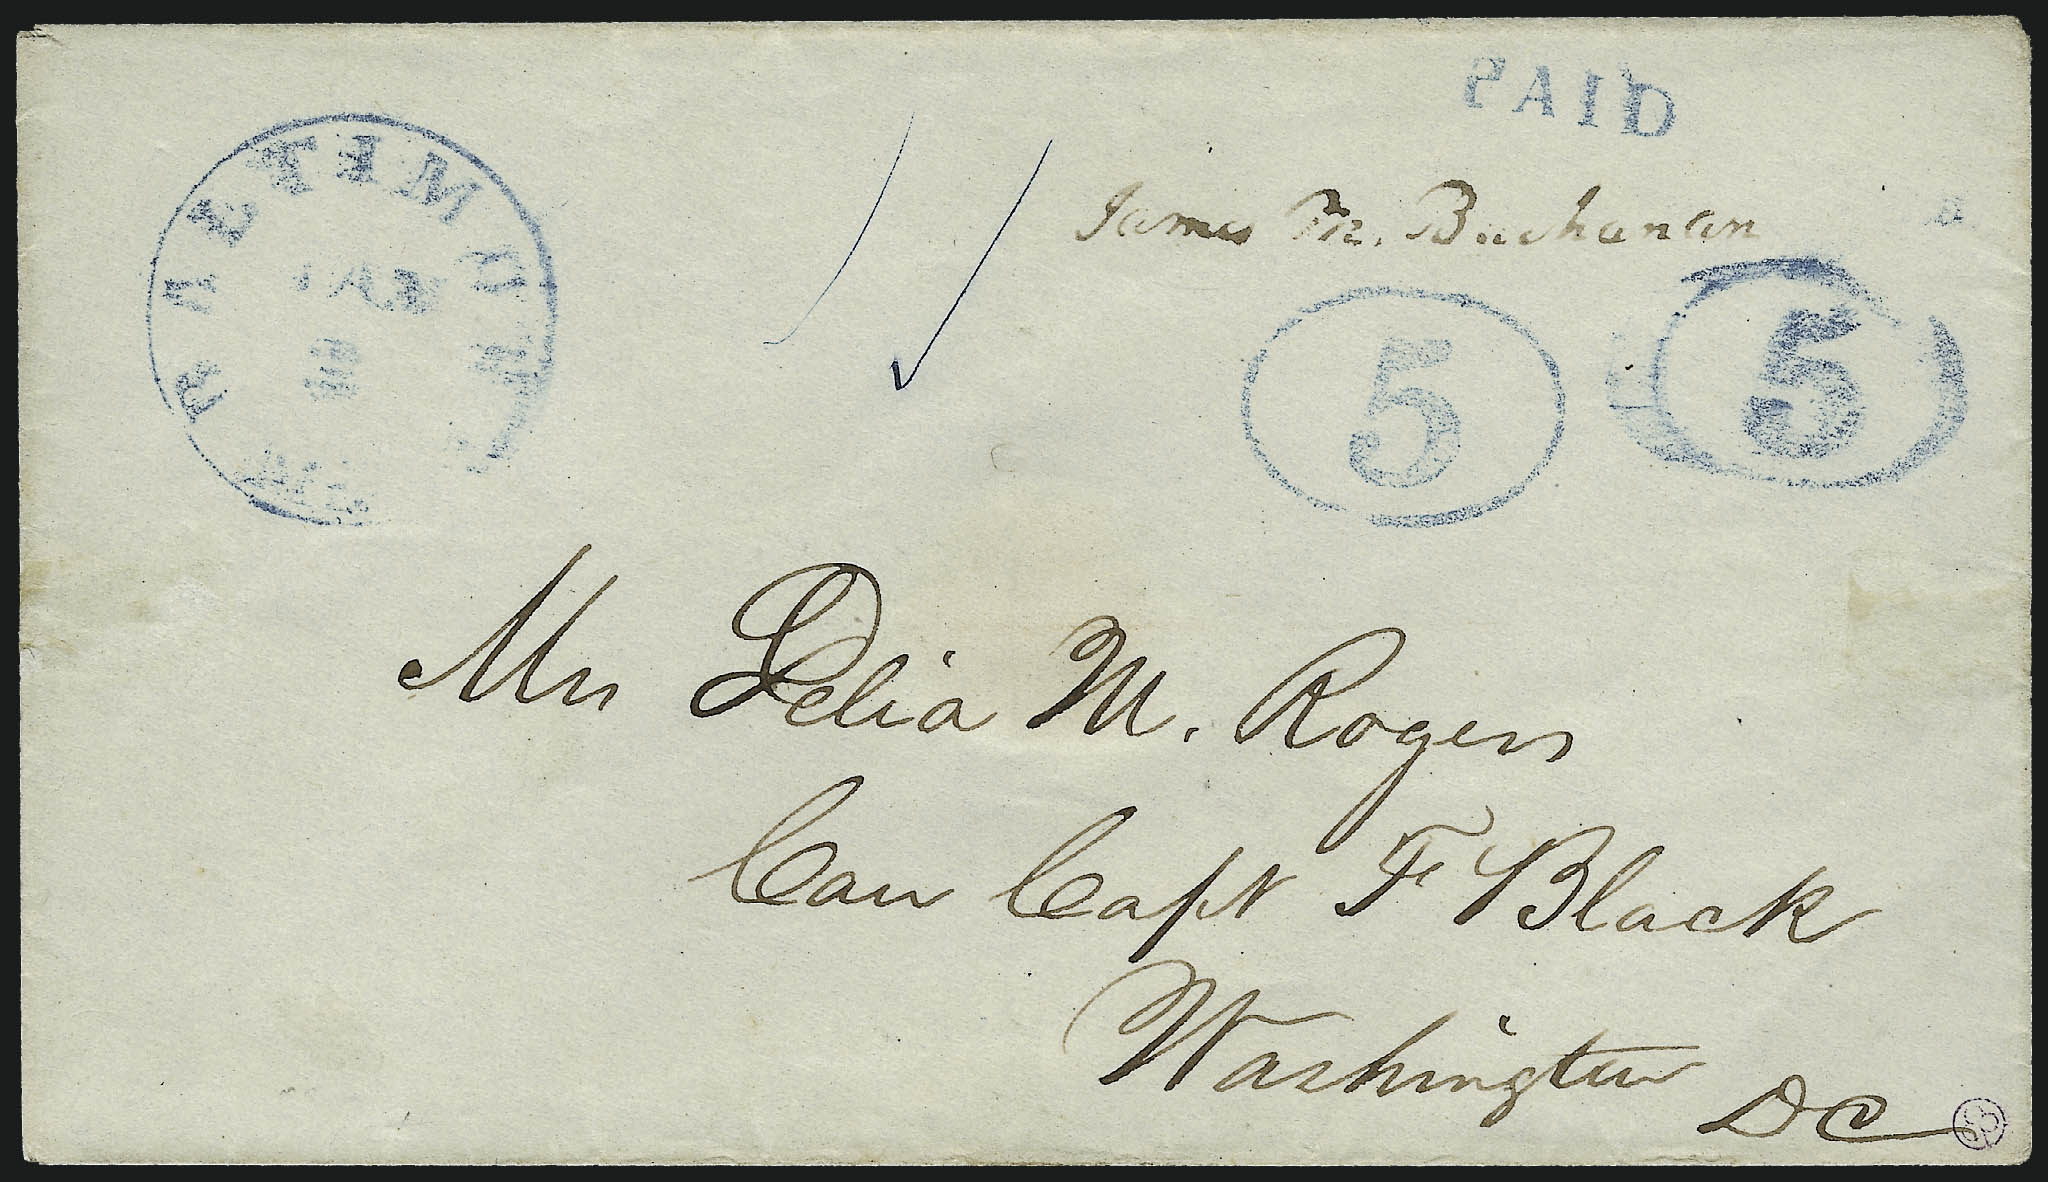 PAID
BALTIMORE
James M. Buchanan
5
5
Mrs Delia M. Rogers
Care Capt F Black
Washington
DC